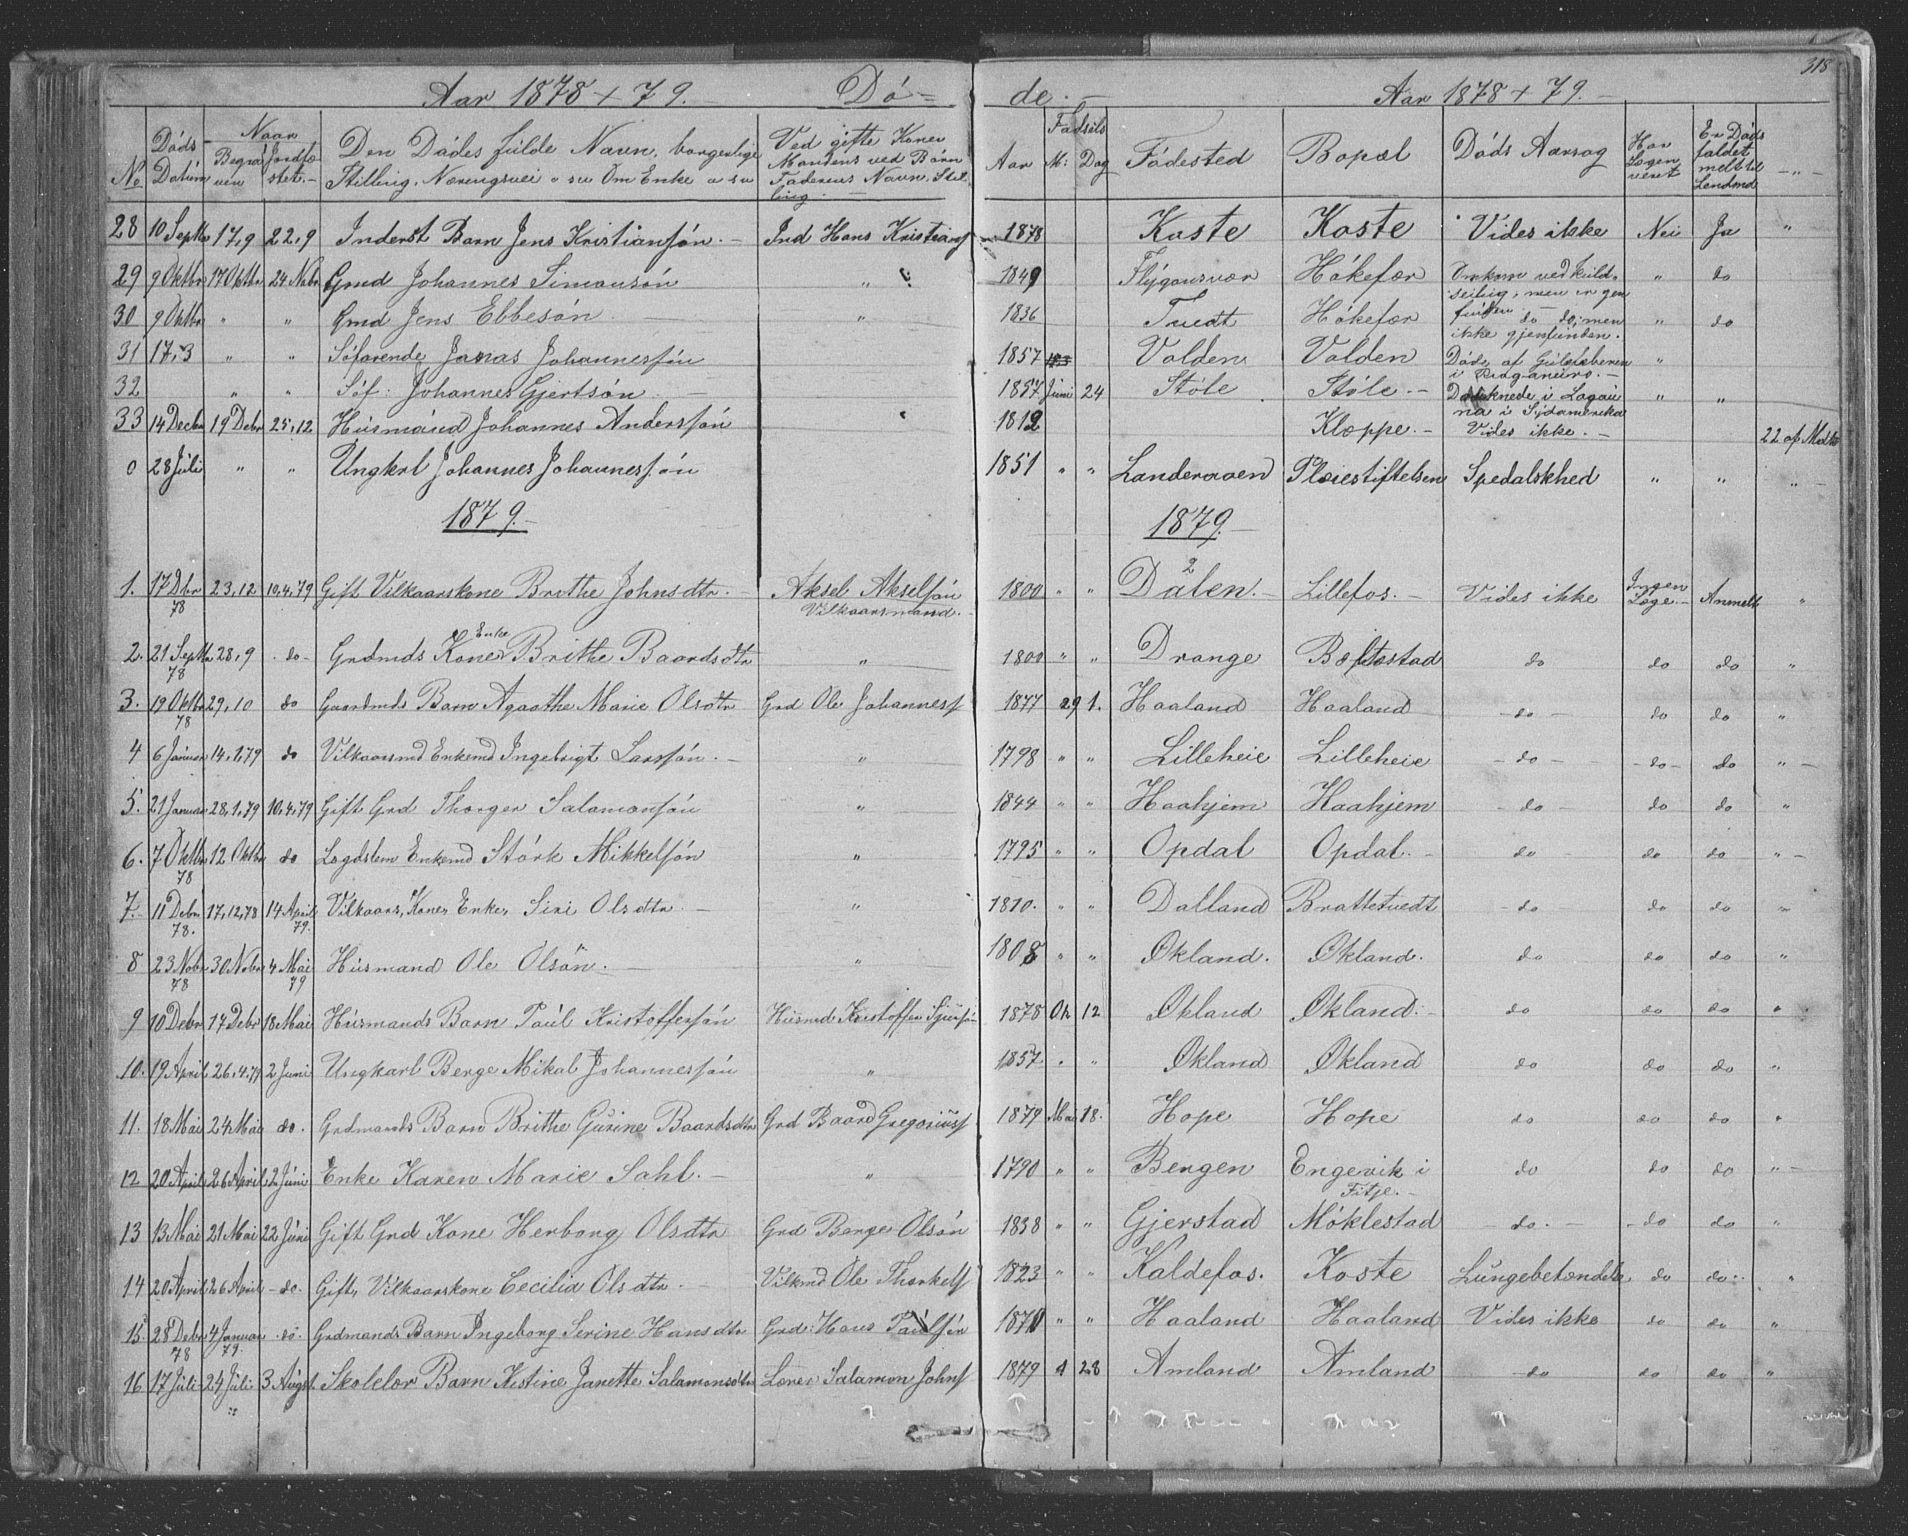 318
Aar 1878 + 79. Dö= de. Aar 1878 + 79.
No Döds Datum Naar Begra ven Jordfæ stet. Den Dödes fulde Navn, borgerlige Stilling, Næringsvei o sv Om Enke o sv Ved gifte Koner Mandens ved Börn Faderens Navn, Stil ling. Födsels Aar M: Dag Födested Bopæl Döds Aarsag Har Lægen veret Er Döds faldet meldt til Lendmd
28 10 Septbr 17,9 22,9 Inderst Barn Jens Kristiansön. Ind Hans Kristians 1878 Koste Koste Vides ikke Nei Ja "
29 9 Oktbr 17 Oktbr 24 Nobr Gmd Johannes Simonsön " 1849 Flygansvær Hökefær Omkom ved Kuld- " do
seiling, men er gen
30 9 Oktbr " " Gmd Jens Ebbesön " 1836 Tvedt Hökefær funden do do, men " do
ikke gjenfunden.
31 17,3 " " Söfarende Jonas Johannessön 1857 Valden Valden Döde af Gulefeberen "
i
32 " " Söf: Johannes Gjertsön 1857 Juni 24 Stöle Stöle Druknede i Lagau " "
na i Sydamerika
33 14 Decbr 19 Debr 25,12 Husmand Johannes Anderssön 1812 Kloppe. Vides ikke. 22 af
0 28 Juli " " Ungkrl Johannes Johannessön 1851 " " Landeraaen Pleiestiftelsen Spedalskhed " " "
1879. 1879.
1. 17 Dbr 78 23,12 10,4,79 Gift Vilkaarskone Brithe Johnsdtr. Aksel Akselsön Vilkaarsmand. 1800 " " Dalen. Lillefos. Vides ikke Ingen Læge. Anmelt "
2. 21 Septbr 78 28,9 do Grdmds Kone Enke Brithe Baardsdtr " 1800 " " Drange Bæltestad do do do "
3. 19 Oktbr 78 29,10 do Gaardmds Barn Agaathe Marie Olsdtr Grd Ole Johanness 1877 29 1. Haaland Haaland do do do "
4 6 Januar 14,1,79 do Vilkaarsmd Enkemd Ingebrigt Larssön. " 1798 " " Lilleheie Lilleheie do do do "
5. 21 Januar 28,1,79 10,4,79 Gift Grd Thorger Salamonsön " 1844 " " Haahjem Haahjem do do do "
6. 7 Oktbr 78 12 Oktbr do Lægdslem Enkemd Störk Mikkelsön " 1795 " " Opdal Opdal. do do do "
7. 11 Debr 78. 17,12,78 14 April 79. Vilkaars, Kone, Enke, Siri Olsdtr " 1810. " " Dalland Brattetvedt do do do "
8 23 Nobr 78 30 Nobr 4 Mai 79 Husmand Ole Olsön. " 1808 " " Økland. Økland. do do do "
9 10 Debr 17 Debr 18 Mai Husmands Barn Paul Kristoffersön Husmd Kristoffer Sjursön 1878 Ok 12 Økland Økland. do do do "
10. 19 April 26,4,79 2 Juni Ungkarl Berge Mikal Johannessön " 1857. " " Økland Økland do do do "
11. 18 Mai 24 Mai do. Grdmands Barn Brithe Gurine Baardsdtr Grd Baard Gregoriuss 1879 Mai 18. Hope Hope do do do "
12 20 April 26 April 2 Juni Enke Karen Marie Sahl. " 1790 " " Bergen Engevik i Fitje. do do do "
13 13 Mai 21 Mai 22 Juni Gift Grd Kone Herborg Olsdtr Grd Berge Olsön 1838 " " Gjerstad Möklestad do. do do "
14 20 April 26 April do. Gift, Vilkaarskone Cecilia Olsdtr. Vilkmd Ole Thorkels 1823 " " Kaldefos. Koste Lungebetændelse do do. "
15. 28 Debr 78 4 Januar 79. do. Grdmands Barn Ingeborg Serine Hansdtr Grd: Hans Paulsön 1870 " " Haaland Haaland Vides ikke do do "
16 17 Juli 24 Juli 3 Augst. Skolelær Barn Kistine Janette Salamonsdtr Lærer Salamon Johns 1879 4 28 Amland Amland do do do "